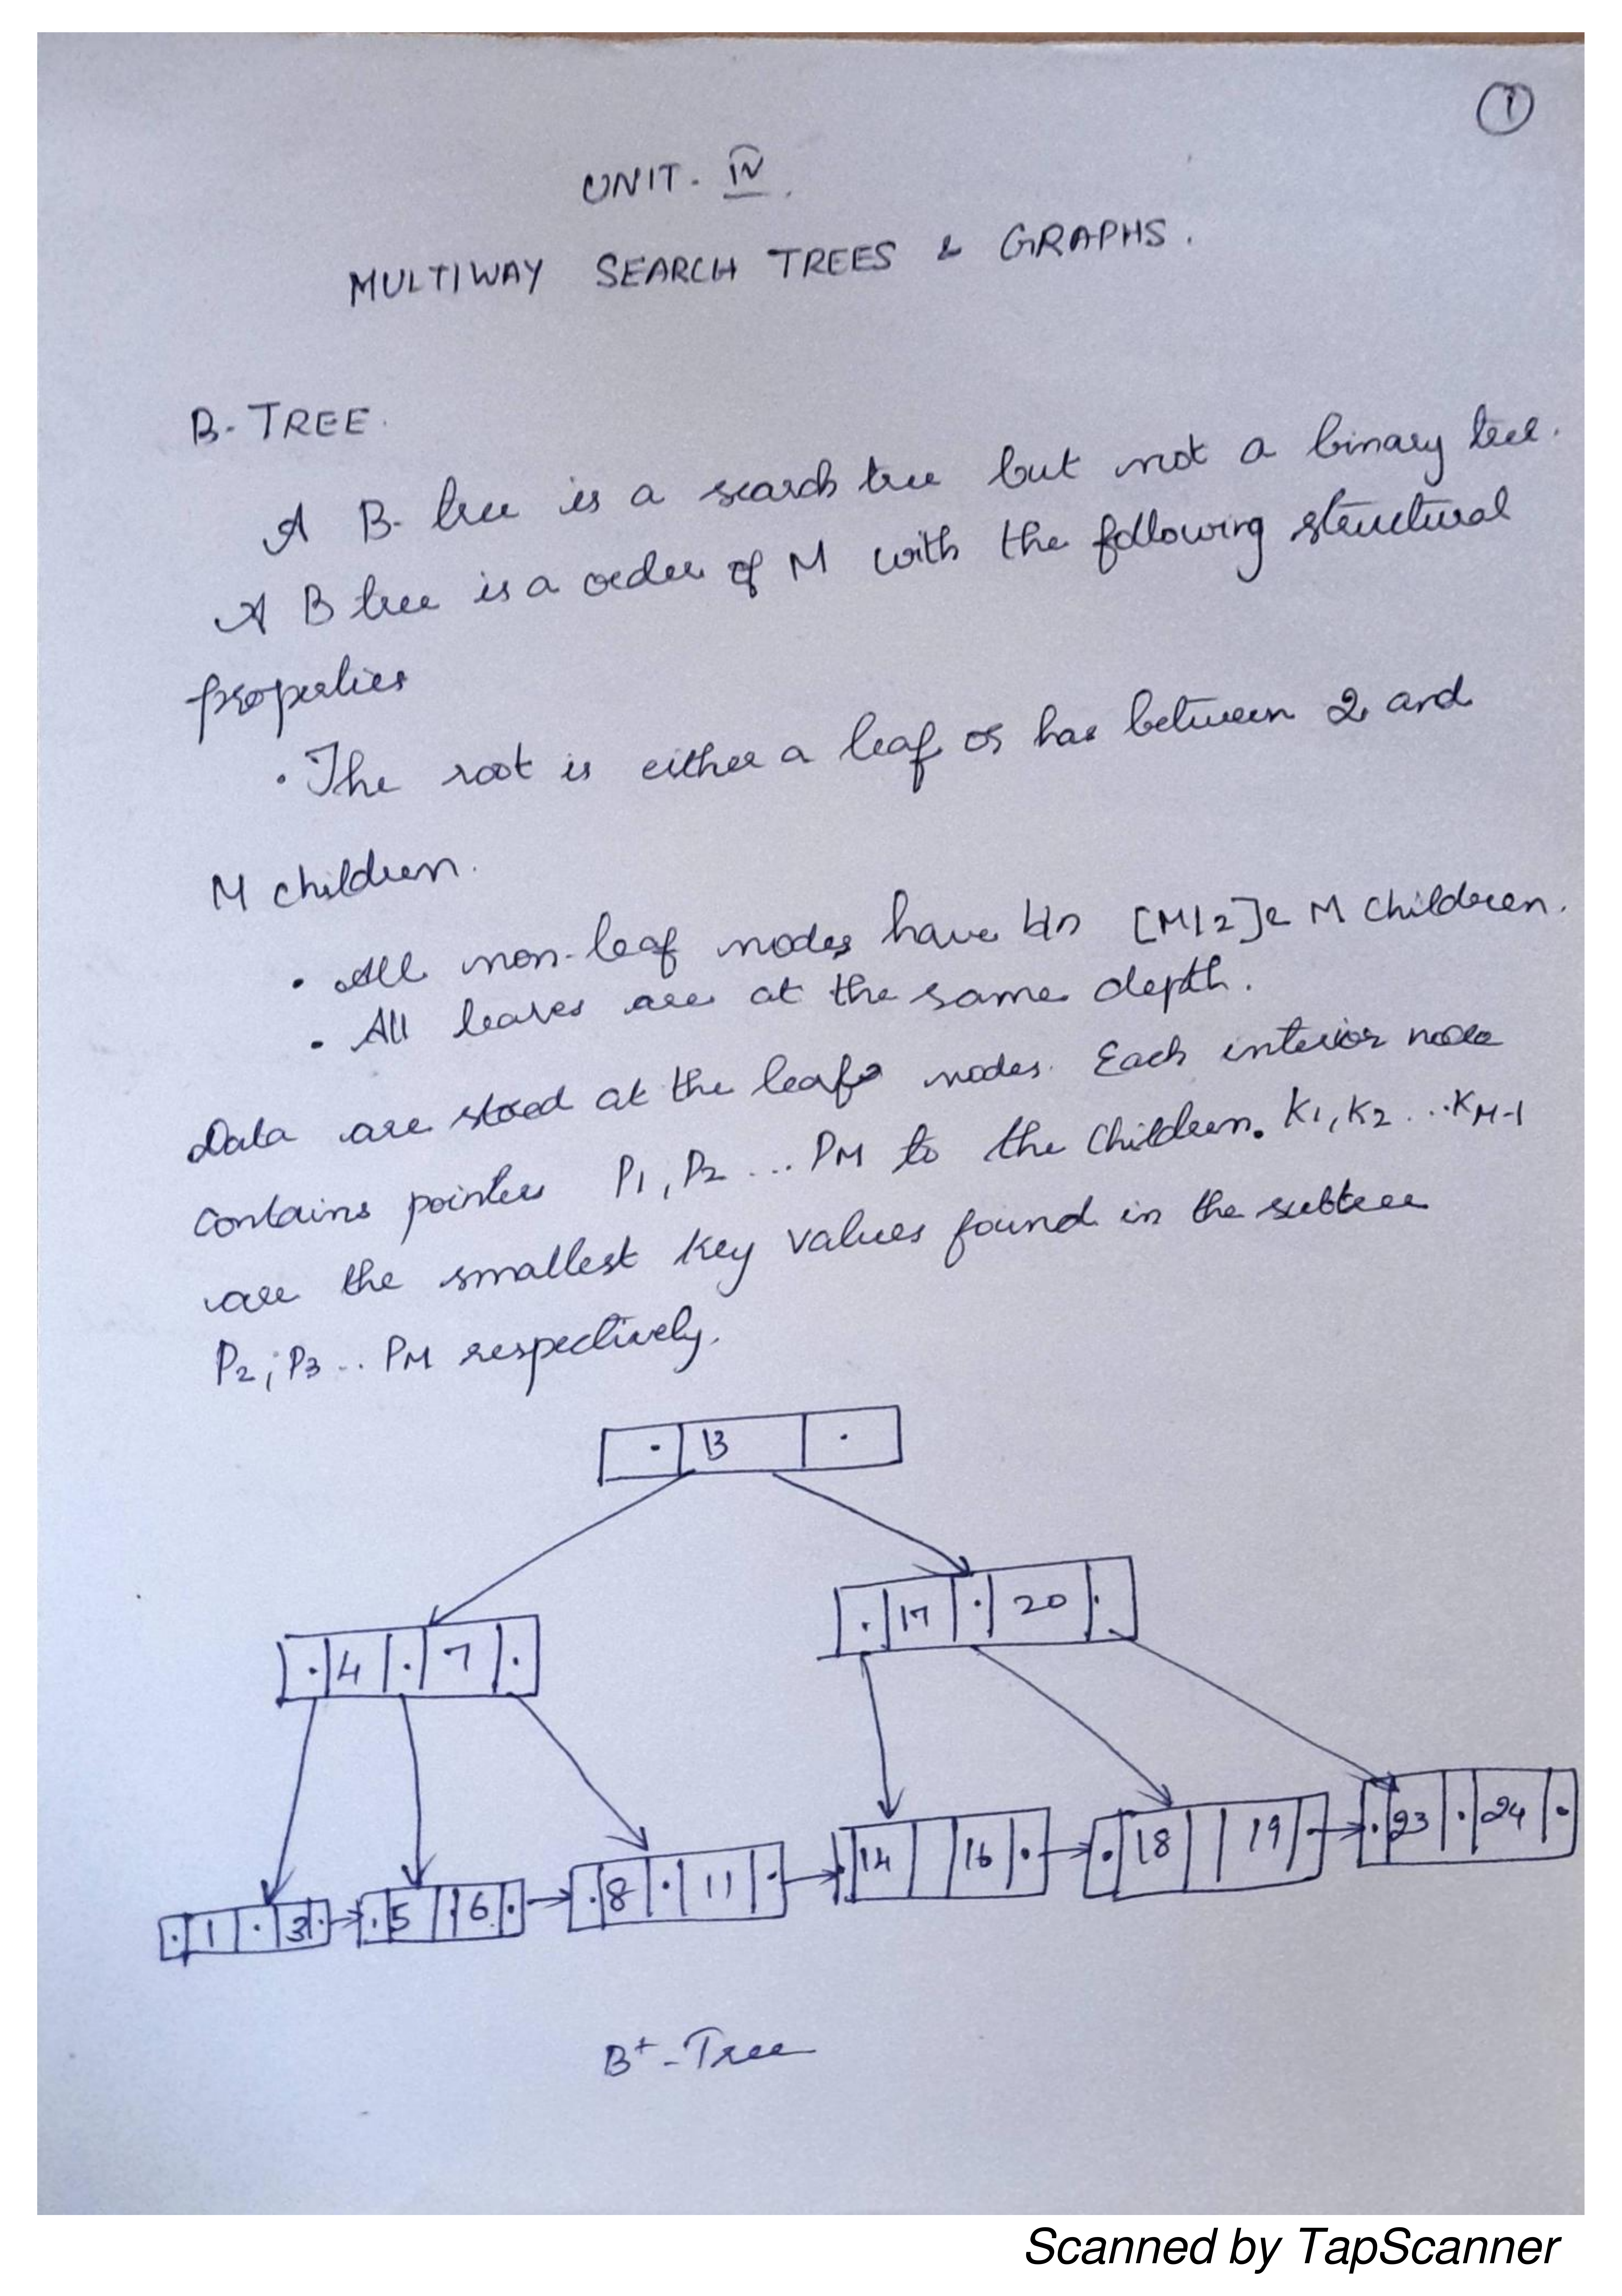 1
UNIT- IV.
MULTIWAY SEARCH TREES & GRAPHS.
B-TREE.
A B-tree is a search tree but not a binary tree.
A B tree is a order of M with the following structural
properties
• The root is either a leaf or has between 2 and
M children.
• All non-leaf nodes have b/n [M/2] & M children.
• All leaves are at the same depth.
Data are stoed at the leafs nodes. Each interior node
contains pointers P1, P2 ... PM to the children. K1, K2 ...KM-1
are the smallest key values found in the subtree
P2, P3 .. PM respectively.
13
17 20
4 7
1 3 5 6 8 11 14 16 18 19 23 24
B+-Tree
Scanned by TapScanner